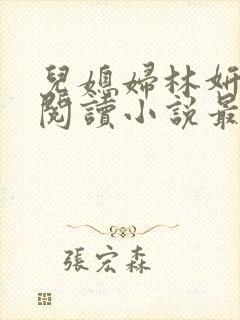 兒媳婦林妍
閱讀小說最
張宏森